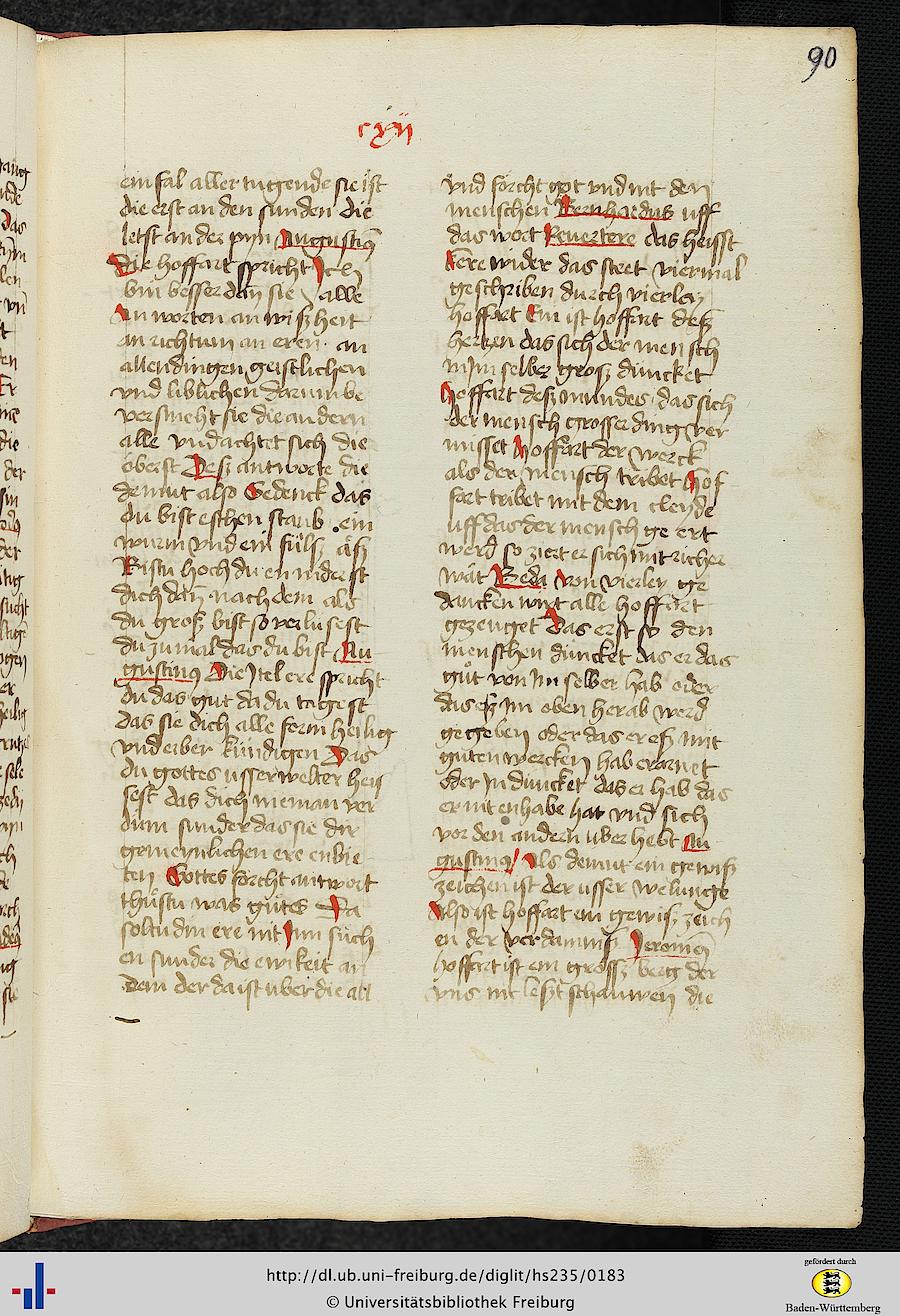 90
cxij
ein fal aller tugende sie ist
die erst an den sunden die
letst an der pyn Augustinꝰ
Die hoffart spricht Ich
bin besser dan̄ sie alle
An worten an wiszheit
an richtum an eren an
allen dingen geistlichen
vnd liblichen darumbe
versmeht sie die andern
alle vnd achtet sich die
oberst Desz antworte die
demut also Gedenck das
du bist eschen staub ein
wurm vnd ein fulsz asz
Bistu hoch du en widerst
dich dan̄ nach dem als
du grosz bist so verlusest
du zumal das du bist Au
gustinꝰ Die Itel ere spricht
du das gut da du
das sie dich alle fern heilig
vnd erber kundigen Das
du gottes usserwelter heis
sest das dich nieman ver
dum sunder das sie dir
gemeynlichen ere enbie
ten Gottes forcht antwort
thustu was gutes Da
soltu din ere nit Inn such
en sunder die ewikeit an
dem der da ist uber die all
vnd forcht got vnd nit den
menschen Bernhardus uff
das wort Reuertere das heisst
kere wider das steet viermal
geschriben durch vierley
hoffart Ein ist hoffart desz
hertzen das sich der mensch
In Im selber grosz duncket
Hoffart desz mundes das sich
der mensch grosser ding ver
misset Hoffart der werck
als der mensch tribet Hof
fart tribet mit dem cleyde
uff das der mensch ge ert
werd so ziert er sich mit richer
wat Beda von vierley ge
dancken wirt alle hoffart
gezeuget Das erst so den
menschen duncket das er das
gut von Im selber hab oder
das esz Im oben herab werd
gegeben oder das er esz mit
guten wercken hab erarnet
oder In duncket das er hab das
er nit enhabe hat vnd sich
vor den andern uber hebt Au
gustinꝰ Als demut ein gewisz
zeichen ist der usser welunge
Also ist hoffart ein gewisz zeich
en der verdamnisz Jeromꝰ
hoffart ist ein grossz berg der
vns nit leszt schauwen die
http://dl.ub.uni-freiburg.de/diglit/hs235/0183
© Universitätsbibliothek Freiburg
gefördert durch
Baden-Württemberg